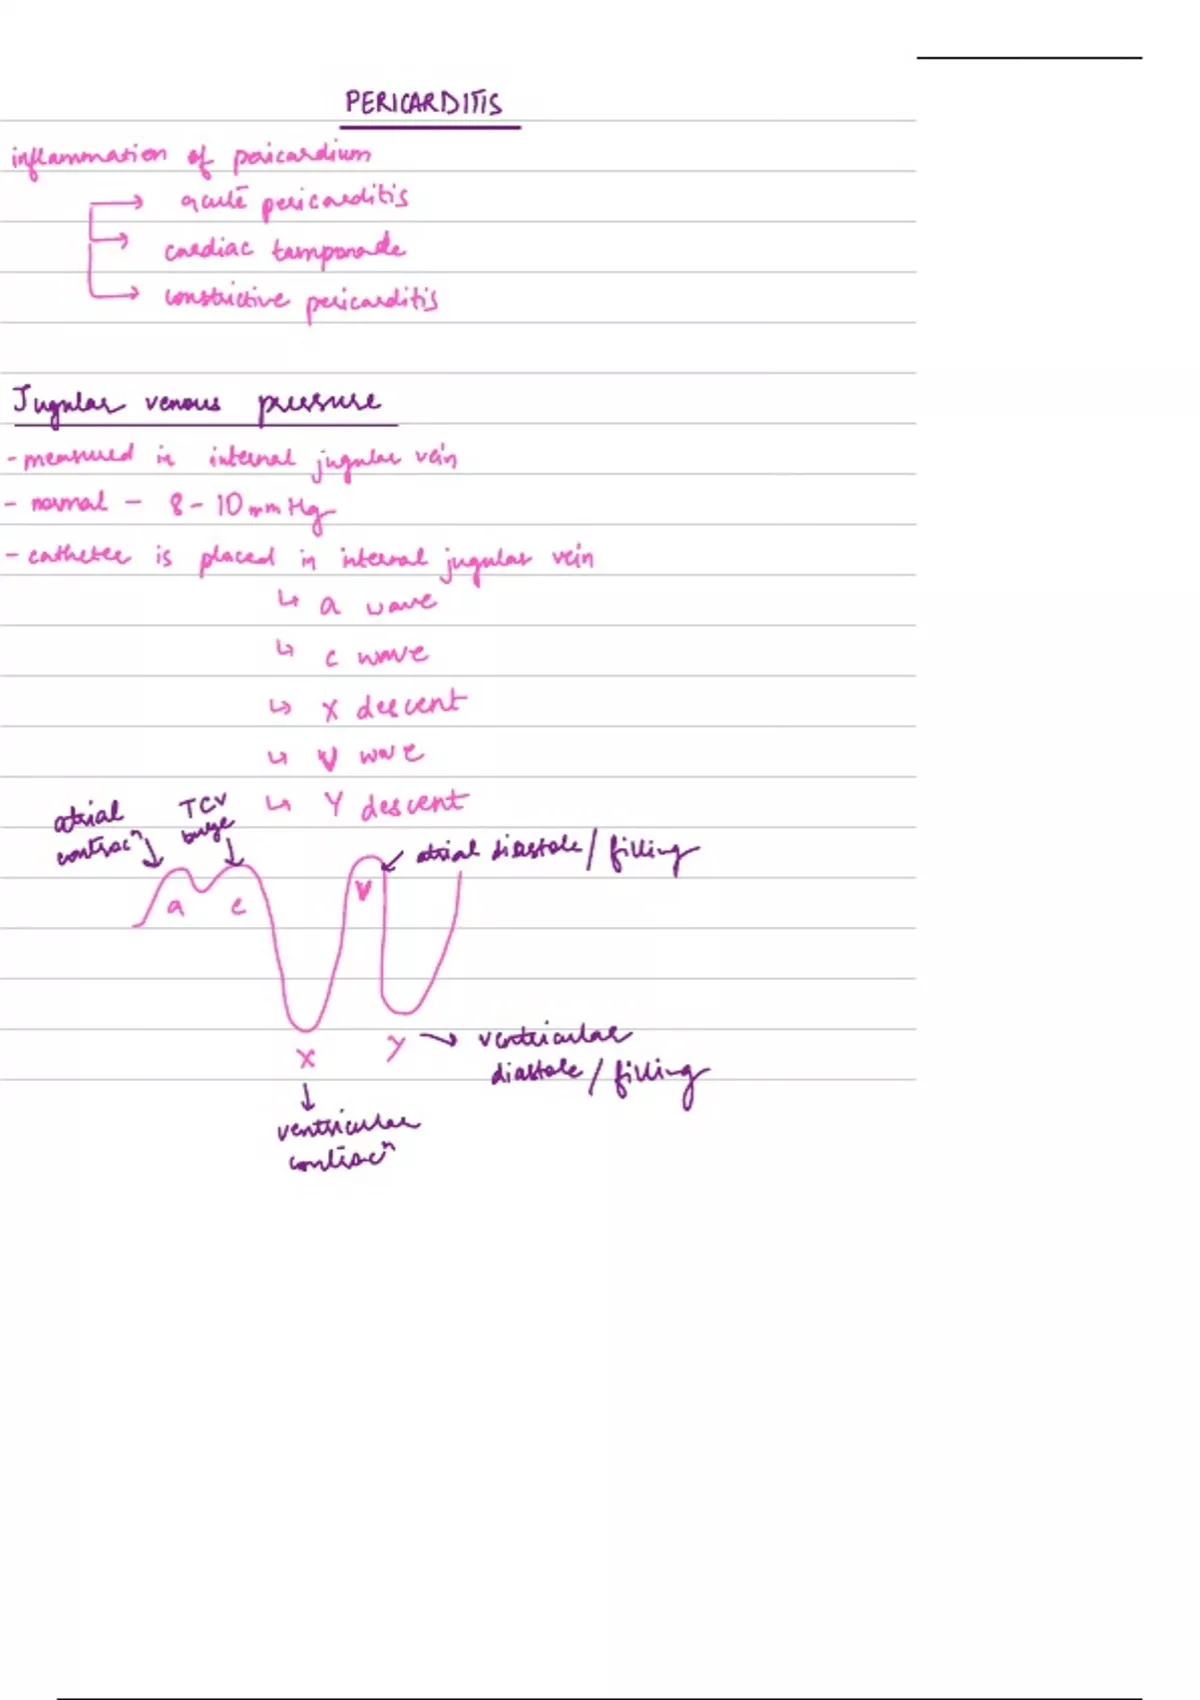 PERICARDITIS
inflammation of pericardium
→ acute pericarditis
→ cardiac tamponade
→ constrictive pericarditis
Jugular venous pressure
- measured in internal jugular vein
- normal - 8-10 mmHg
- catheter is placed in internal jugular vein
↳ a wave
↳ c wave
↳ X descent
↳ V wave
↳ Y descent
atrial
contracⁿ
TCV
bulge
atrial diastole / filling
a c V
X
Y → ventricular
diastole / filling
ventricular
contracⁿ